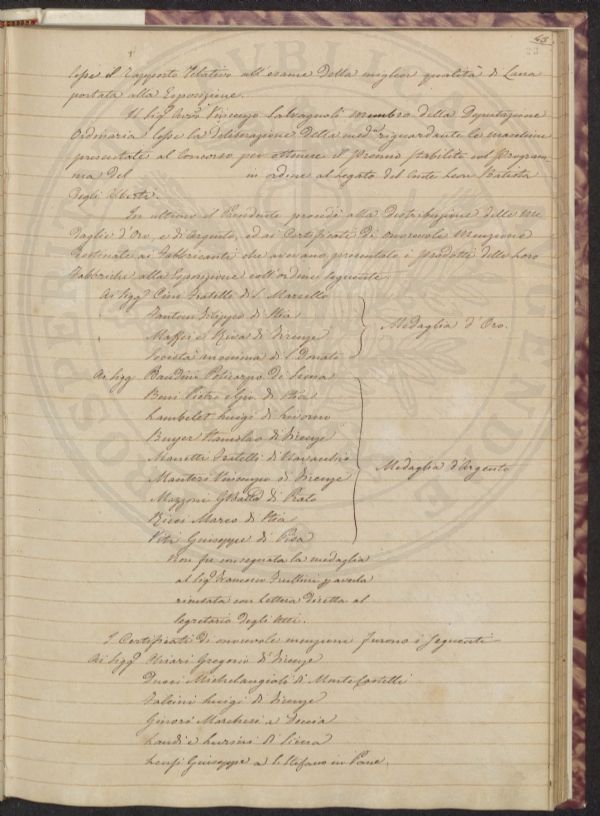 43.
23
lesse il Rapporto relativo all'esame della miglior qualità di Lana
portata alla Esposizione.
Il Sigr Vincenzo Salvagnoli membro della Deputazione
Ordinaria lesse la deliberazione della medª riguardante le macchine
presentate al Concorso per ottenere il Premio stabilito nel Program-
ma del in ordine al Legato del Conte Leon Batista
degli Uberti.
In ultimo il Presidente procedè alla distribuzione delle Me
daglie d'Oro, e di Argento, ed ai Certificati di onorevole menzione
destinate ai Fabbricanti che avevano presentato i prodotti delle loro
Fabbriche alla Esposizione coll'ordine seguente.
Ai Sigg Cini Fratelli di S. Marcello
Fantoni Filippo di Stia
Maffei e Riva di Firenze
Società anonima di S. Donato
Medaglia d'Oro.
Ai Sigg Bandini Policarpo di Siena
Beni Pietro e Gio di Stia
Lambelet Luigi di Livorno
Buyer Stanislao di Firenze
Manetti Fratelli di Navacchio
Manteri Vincenzio di Firenze
Mazzoni di Prato
Ricci Marco di Stia
Viti Giuseppe di Pisa
Medaglia d'Argento
Non fu consegnata la medaglia
al Sigr Francesco per averla
rinutata con Lettera diretta al
Segretario degli Atti.
I Certificati di onorevole menzione furono i seguenti
Ai Sigg Chiari Gregorio di Firenze
Ducci Michelangiolo di Monte Castelli
Falcini Luigi di Firenze
Ginori Marchese a Doccia
Landi e di Siena
Giuseppe a S. Stefano in Pane.